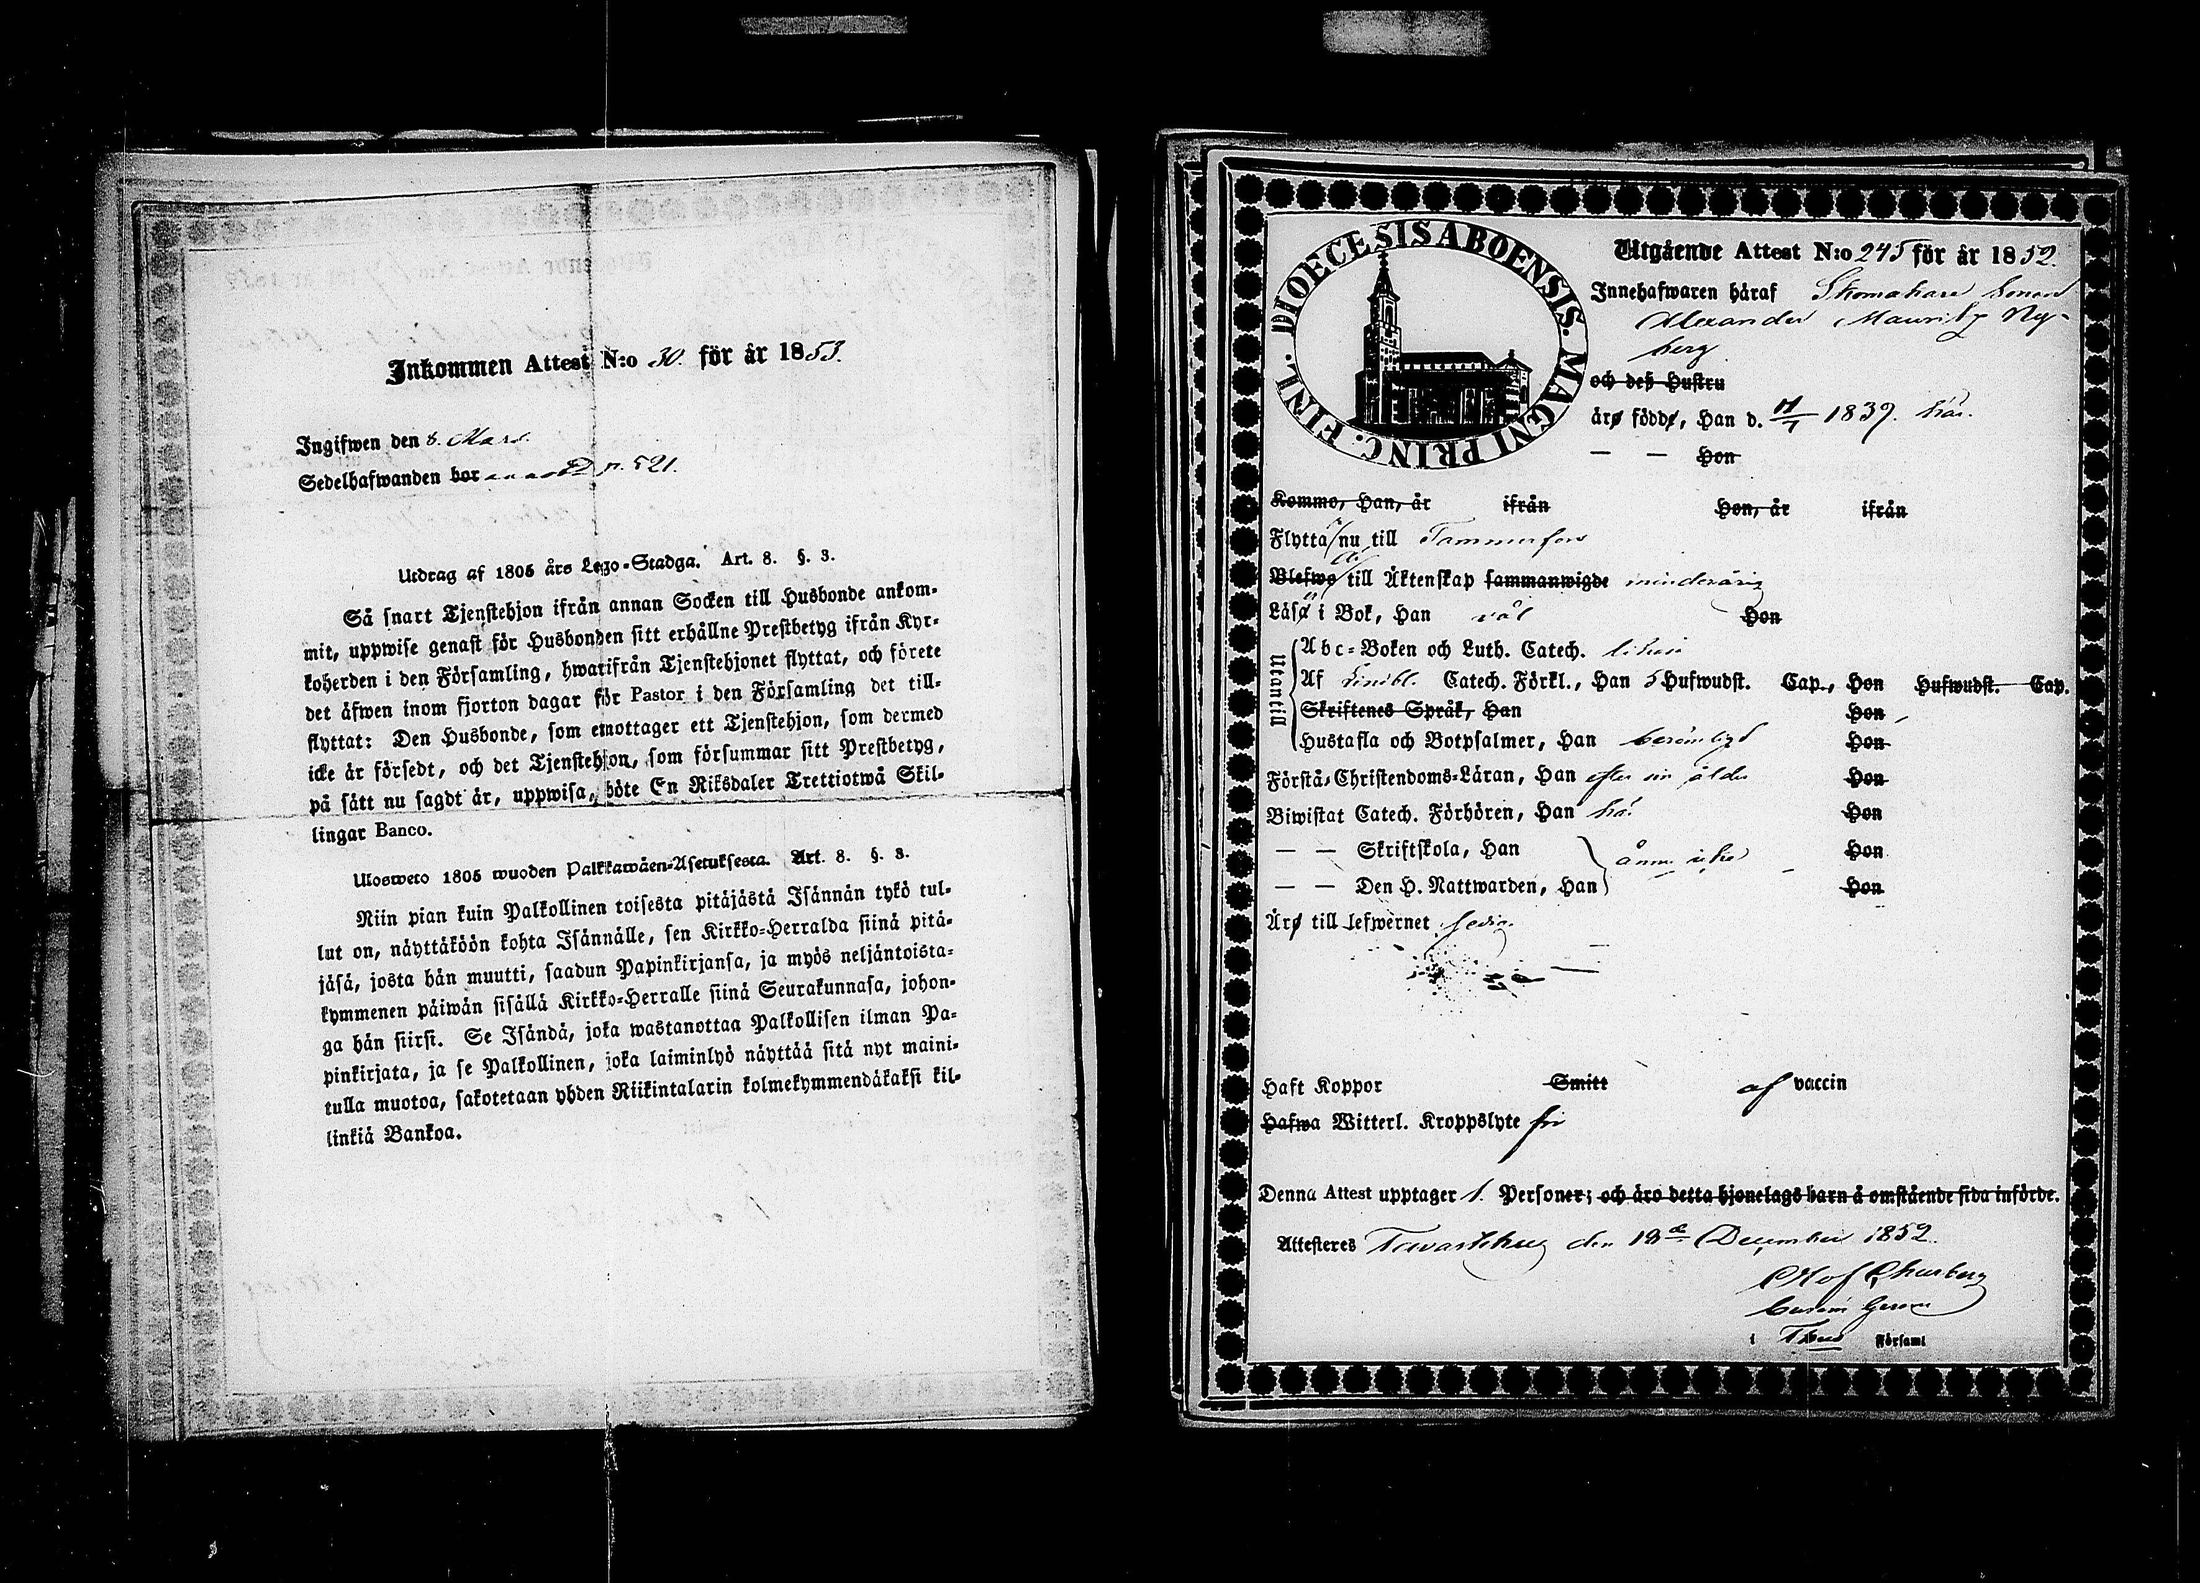 Inkommen Attest N:o 30. för år 1853.
Ingifwen den 8. Mars.
Sedelhafwanden bor p. 521.
Utdrag af 1805 års Lego-Stadga. Art. 8. §. 3.
Så snart Tjenstehjon ifrån annan Socken till Husbonde ankom-
mit, uppwise genast för Husbonden sitt erhållne Prestbetyg ifrån Kyr-
koherden i den Församling, hwarifrån Tjenstehjonet flyttat, och förete
det äfwen inom fjorton dagar för Pastor i den Församling det till-
flyttat: Den Husbonde, som emottager ett Tjenstehjon, som dermed
icke är försedt, och det Tjenstehjon, som försummar sitt Prestbetyg,
på sätt nu sagdt är, uppwisa, böte En Riksdaler Trettiotwå Skil-
lingar Banco.
Ulosweto 1805 wuoden Palkkawäen-Asetuksesta. Art. 8. §. 3.
Niin pian kuin Palkollinen toisesta pitäjästä Isännän tykö tul-
lut on, näyttäköön kohta Isännälle, sen Kirkko-Herralda siinä pitä-
jäsä, josta hän muutti, saadun Papinkirjansa, ja myös neljäntoista-
kymmenen päiwän sisällä Kirkko-Herralle siinä Seurakunnasa, johon-
ga hän siirsi. Se Isändä, joka wastanottaa Palkollisen ilman Pa-
pinkirjata, ja se Palkollinen, joka laiminlyö näyttää sitä nyt maini-
tulla muotoa, sakotetaan yhden Riikintalarin kolmekymmendäkaksi kil-
linkiä Bankoa.
DIOECESIS ABOENSIS. MAGNI PRINC. FINL.
Utgående Attest N:o 245 för år 1852.
Innehafwaren häraf Skomakare sonen
Alexander Mauritz Ny-
berg
och deß Hustru
äro födde, Han d. 1839. här.
— — Hon
Komme, Han, år ifrån Hon, år ifrån
Flytta nu till Tammerfors
Blefwo till Äktenskap sammanwigde minderårig
Läsa i Bok, Han väl Hon
Utantill
Abc-Boken och Luth. Catech. likaså
Af Lindbl. Catech. Förkl., Han 5 Hufwudst. Cap., Hon Hufwudst. Cap.
Skriftenes Språk, Han Hon
Hustafla och Botpsalmer, Han berömligt Hon
Förstå Christendoms-Läran, Han efter sin ålder Hon
Biwistat Catech. Förhören, Han här Hon
— — Skriftskola, Han ännu icke Hon
— — Den H. Nattwarden, Han Hon
Äro till lefwernet sedig
Haft Koppor Smitt af vaccin
Hafwa Witterl. Kroppslyte fri
Denna Attest upptager 1. Personer; och äro detta hjonelags barn å omstående sida införde.
Attesteres Tavastehus den 18de December 1852.
Olof
i Thus Församl